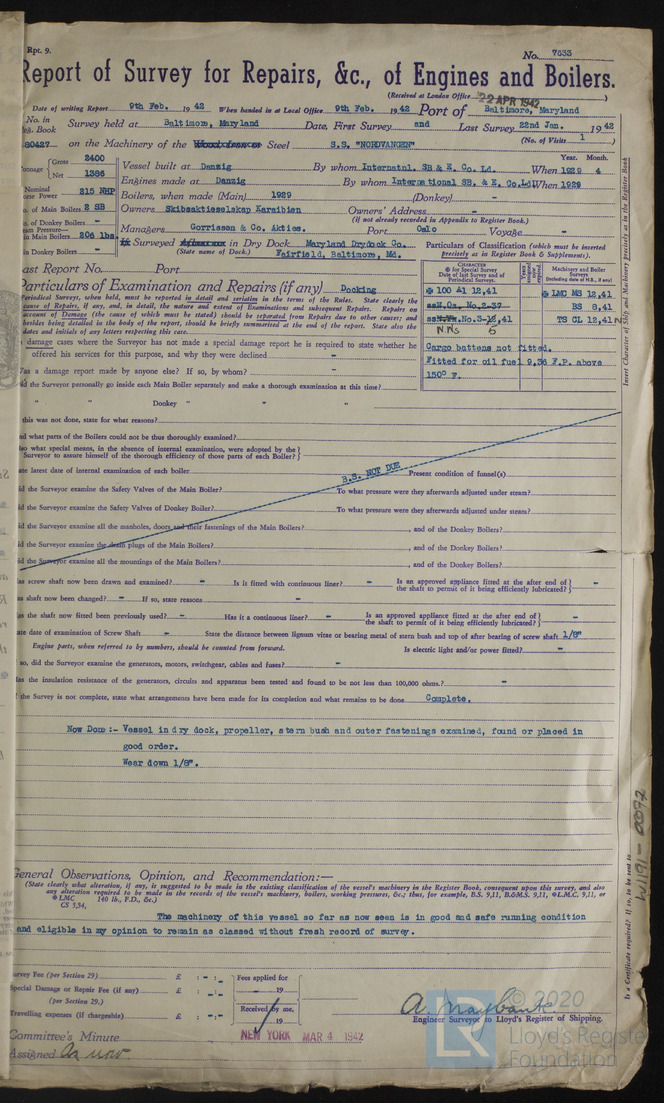 Rpt. 9.
No. 7633
Report of Survey for Repairs, &c., of Engines and Boilers.
(Received at London Office 22 APR 1942)
Date of writing Report 9th Feb. 1942 When handed in at Local Office 9th Feb. 1942 Port of Baltimore, Maryland
No. in Survey held at Baltimore, Maryland Date, First Survey and Last Survey 22nd Jan. 1942
eg. Book
80427 on the Machinery of the Steel S.S. "NORDVANGEN" (No. of Visits 1)
Tonnage Gross 2400
Net 1386
Vessel built at Danzig By whom Internatnl. SB & E. Co. Ld. When 1929 4
Year. Month.
Engines made at Danzig By whom International SB. & E. Co. Ld. When 1929
Nominal Horse Power 315 NHP
Boilers, when made (Main) 1929 (Donkey) -
No. of Main Boilers 2 SB
Owners Skibsaktieselskap Karaibien Owners' Address -
(if not already recorded in Appendix to Register Book.)
No. of Donkey Boilers -
Managers Gorrissen & Co. Akties. Port Oslo Voyage -
Steam Pressure-
in Main Boilers 206 lbs.
in Donkey Boilers -
If Surveyed in Dry Dock Maryland Drydock Co.
(State name of Dock.) Fairfield, Baltimore, Md.
Particulars of Classification (which must be inserted precisely as in Register Book & Supplements).
Last Report No. Port
Particulars of Examination and Repairs (if any) Docking
Periodical Surveys, when held, must be reported in detail and seriatim in the terms of the Rules. State clearly the
cause of Repairs, if any, and, in detail, the nature and extent of Examinations and subsequent Repairs. Repairs on
account of Damage (the cause of which must be stated) should be separated from Repairs due to other causes; and
besides being detailed in the body of the report, should be briefly summarised at the end of the report. State also the
dates and initials of any letters respecting this case.
CHARACTER
for Special Survey
Date of last Survey and of
Periodical Surveys.
Machinery and Boiler
Surveys
(including date of N.B., if any)
100 A1 12,41
LMC MS 12,41
ssN.Os. No.2-37
BS 8,41
No.3-12,41
TS CL 12,41
N.Ns 5
Cargo battens not fitted.
Fitted for oil fuel 9,36 F.P. above
150° F.
Insert Character of Ship and Machinery precisely as in the Register Book
In damage cases where the Surveyor has not made a special damage report he is required to state whether he
offered his services for this purpose, and why they were declined -
Was a damage report made by anyone else? If so, by whom? -
Did the Surveyor personally go inside each Main Boiler separately and make a thorough examination at this time?
" " Donkey " " "
If this was not done, state for what reasons?
And what parts of the Boilers could not be thus thoroughly examined?
Also what special means, in the absence of internal examination, were adopted by the
Surveyor to assure himself of the thorough efficiency of those parts of each Boiler?
State latest date of internal examination of each boiler B.S. NOT DUE Present condition of funnel(s)
Did the Surveyor examine the Safety Valves of the Main Boiler? To what pressure were they afterwards adjusted under steam?
Did the Surveyor examine the Safety Valves of Donkey Boiler? To what pressure were they afterwards adjusted under steam?
Did the Surveyor examine all the manholes, doors and their fastenings of the Main Boilers? , and of the Donkey Boilers?
Did the Surveyor examine the drain plugs of the Main Boilers? , and of the Donkey Boilers?
Did the Surveyor examine all the mountings of the Main Boilers? , and of the Donkey Boilers?
Has screw shaft now been drawn and examined? - Is it fitted with continuous liner? - Is an approved appliance fitted at the after end of the shaft to permit of it being efficiently lubricated? -
Has shaft now been changed? - If so, state reasons -
Has the shaft now fitted been previously used? - Has it a continuous liner? - Is an approved appliance fitted at the after end of the shaft to permit of it being efficiently lubricated? -
State date of examination of Screw Shaft - State the distance between lignum vitae or bearing metal of stern bush and top of after bearing of screw shaft 1/8"
Engine parts, when referred to by numbers, should be counted from forward. Is electric light and/or power fitted? -
If so, did the Surveyor examine the generators, motors, switchgear, cables and fuses? -
Has the insulation resistance of the generators, circuits and apparatus been tested and found to be not less than 100,000 ohms.? -
If the Survey is not complete, state what arrangements have been made for its completion and what remains to be done Complete.
Now Done :- Vessel in dry dock, propeller, stern bush and outer fastenings examined, found or placed in
good order.
Wear down 1/8".
W191-0092
General Observations, Opinion, and Recommendation:—
(State clearly what alteration, if any, is suggested to be made in the existing classification of the vessel's machinery in the Register Book, consequent upon this survey, and also
any alteration required to be made in the records of the vessel's machinery, boilers, working pressures, &c.; thus, for example, B.S. 9,11, B.&M.S. 9,11, L.M.C. 9,11, or
LMC 140 lb., F.D., &c.)
CS 3,34,
The machinery of this vessel so far as now seen is in good and safe running condition
and eligible in my opinion to remain as classed without fresh record of survey.
Is a Certificate required? If so, to be sent to
Survey Fee (per Section 29) £ : - : - Fees applied for
Special Damage or Repair Fee (if any) £ : - 19
(per Section 29.)
Received by me,
Travelling expenses (if chargeable) £ : - 19
A. Maybank
Engineer Surveyor to Lloyd's Register of Shipping.
NEW YORK MAR 4 1942
Committee's Minute
Assigned As now
© 2020
LR
Lloyd's Register
Foundation